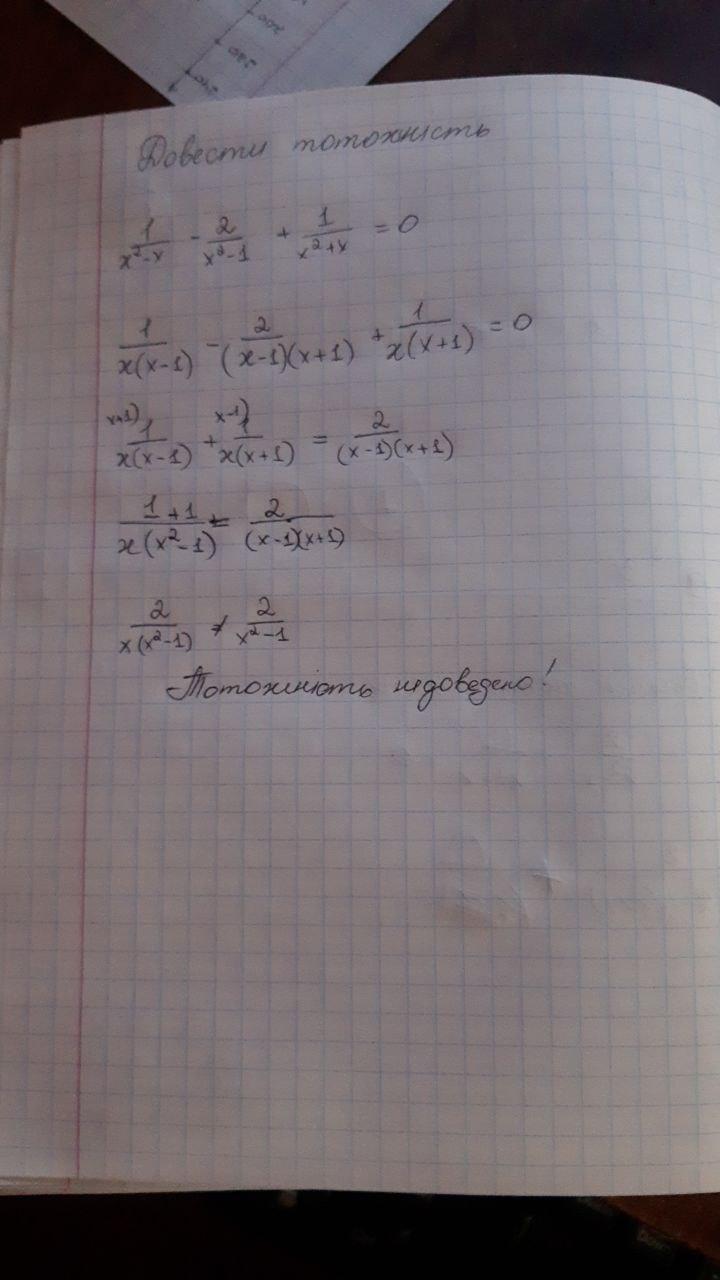 Довести тотожність
1/(x²-x) - 2/(x²-1) + 1/(x²+x) = 0
1/(x(x-1)) - 2/((x-1)(x+1)) + 1/(x(x+1)) = 0
x+1) 1/(x(x-1)) + x-1) 1/(x(x+1)) = 2/((x-1)(x+1))
(1+1)/(x(x²-1)) = 2/((x-1)(x+1))
2/(x(x²-1)) ≠ 2/(x²-1)
Тотожність недоведено!